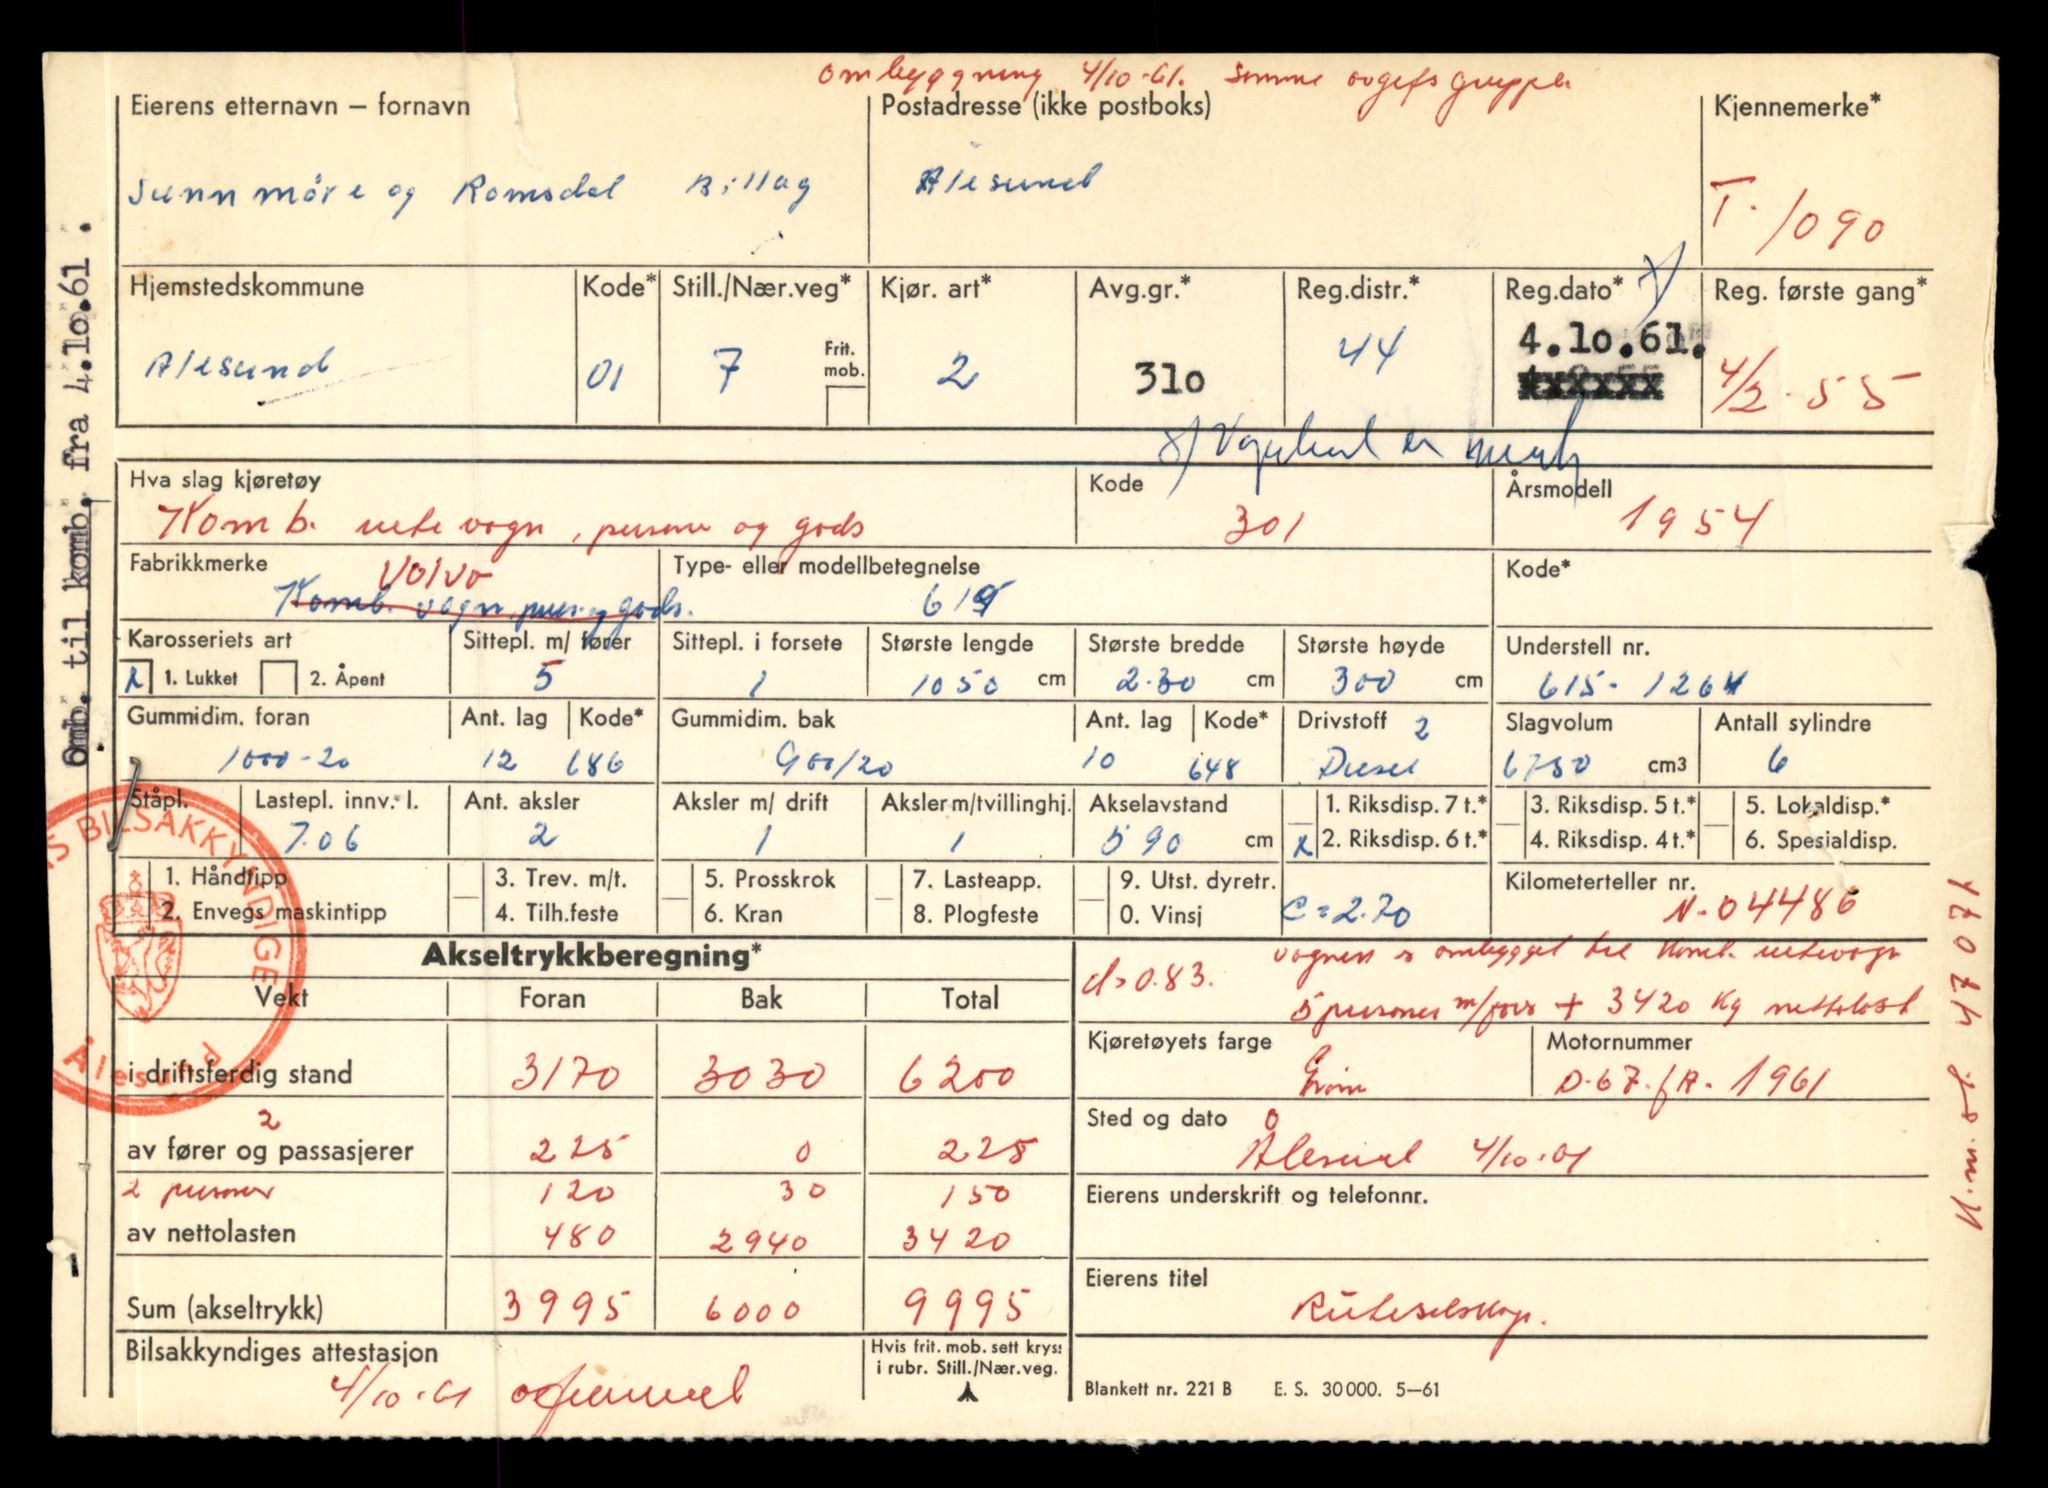 ombyggning 4/10-61. Samme avgiftsgruppe.
Eierens etternavn – fornavn
Postadresse (ikke postboks)
Kjennemerke*
Sunnmöre og Romsdal Billag
Ålesund
T-1090
Hjemstedskommune
Kode*
Still./Nær.veg*
Kjør. art*
Avg.gr.*
Reg.distr.*
Reg.dato* x)
Reg. første gang*
Ålesund
01
7
Frit. mob.
2
310
44
4.10.61.
4/2-55
x) Vognkort er
Hva slag kjøretøy
Kode
Årsmodell
Komb. rutevogn, person og gods
301
1954
Fabrikkmerke
Type- eller modellbetegnelse
Kode*
Volvo
Komb. vogn, pers. og gods.
615
Karosseriets art
Sittepl. m/ fører
Sittepl. i forsete
Største lengde
Største bredde
Største høyde
Understell nr.
x 1. Lukket 2. Åpent
5
1
1050 cm
2.30 cm
300 cm
615-1264
Gummidim. foran
Ant. lag
Kode*
Gummidim. bak
Ant. lag
Kode*
Drivstoff 2
Slagvolum
Antall sylindre
1000-20
12
686
900/20
10
648
Diesel
6750 cm3
6
Ståpl.
Lastepl. innv. l.
Ant. aksler
Aksler m/ drift
Aksler m/tvillinghj.
Akselavstand
1. Riksdisp. 7 t.*
3. Riksdisp. 5 t.*
5. Lokaldisp.*
7.06
2
1
1
590 cm
x 2. Riksdisp. 6 t.*
4. Riksdisp. 4 t.*
6. Spesialdisp.
1. Håndtipp
3. Trev. m/t.
5. Prosskrok
7. Lasteapp.
9. Utst. dyretr.
Kilometerteller nr.
2. Envegs maskintipp
4. Tilh.feste
6. Kran
8. Plogfeste
0. Vinsj
C = 2.70
N-04486
Akseltrykkberegning*
d = 0.83.
vognen er ombygget til komb. rutevogn
5 personer m/fører + 3420 kg nettolast
Vekt
Foran
Bak
Total
Kjøretøyets farge
Motornummer
i driftsferdig stand
3170
3030
6200
Grønn
D.67.fA. 1961
2
av fører og passasjerer
225
0
225
Sted og dato
Ålesund 4/10-61
2 personer
120
30
150
Eierens underskrift og telefonnr.
av nettolasten
480
2940
3420
Sum (akseltrykk)
3995
6000
9995
Eierens titel
Ruteselskap.
Bilsakkyndiges attestasjon
Hvis frit. mob. sett kryss
i rubr. Still./Nær.veg.
4/10-61
Blankett nr. 221 B
E. S. 30000. 5–61
Omb. til komb. fra 4.10.61.
S BILSAKKYNDIGE
Ålesund
47074